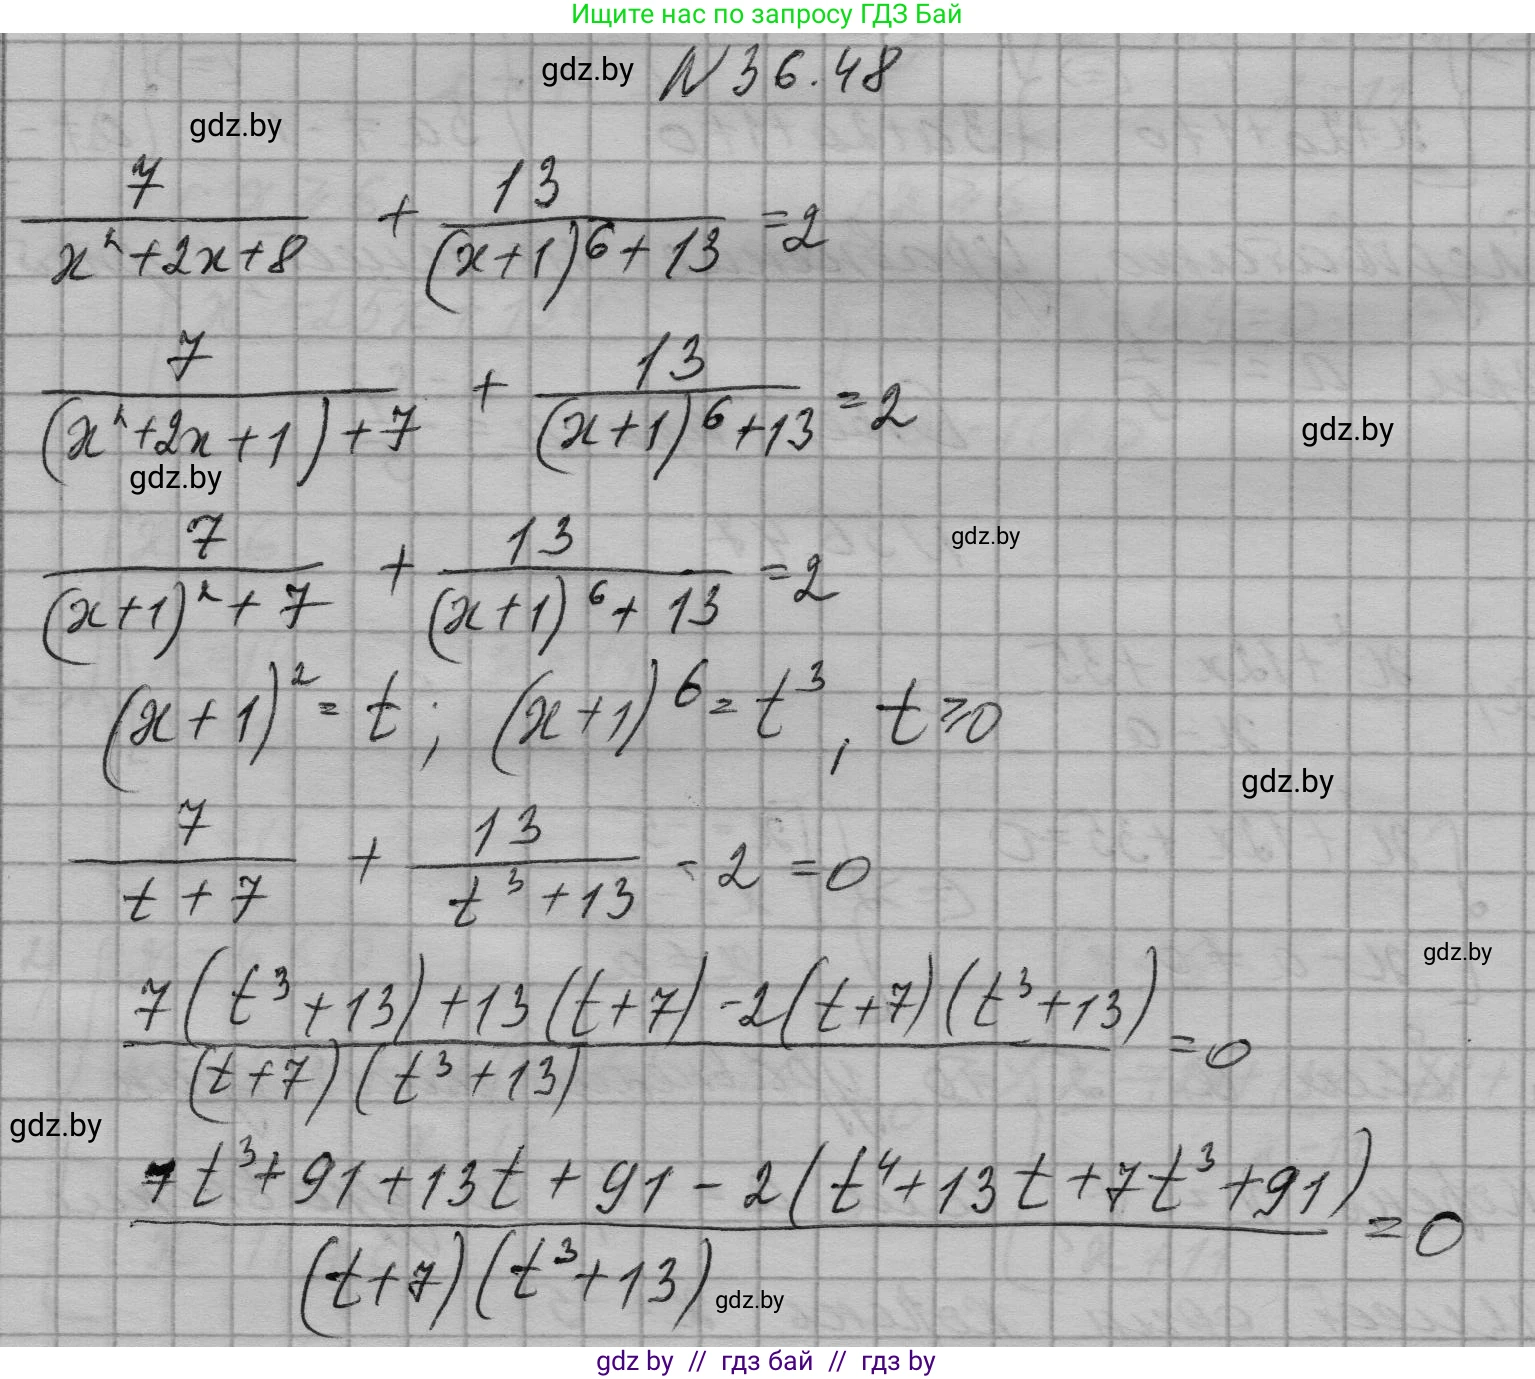 Ищите нас по запросу ГДЗ Бай
gdz.by N 36.48
gdz.by
7/(x²+2x+8) + 13/((x+1)⁶+13) =2
7/((x²+2x+1)+7) + 13/((x+1)⁶+13) =2
gdz.by
gdz.by
7/((x+1)²+7) + 13/((x+1)⁶+13) =2
gdz.by
(x+1)²=t; (x+1)⁶=t³, t≥0
gdz.by
7/(t+7) + 13/(t³+13) -2=0
gdz.by
(7(t³+13)+13(t+7)-2(t+7)(t³+13))/((t+7)(t³+13)) =0
gdz.by
(7t³+91+13t+91-2(t⁴+13t+7t³+91))/((t+7)(t³+13)) =0
gdz.by
gdz by // гдз бай // гдз by